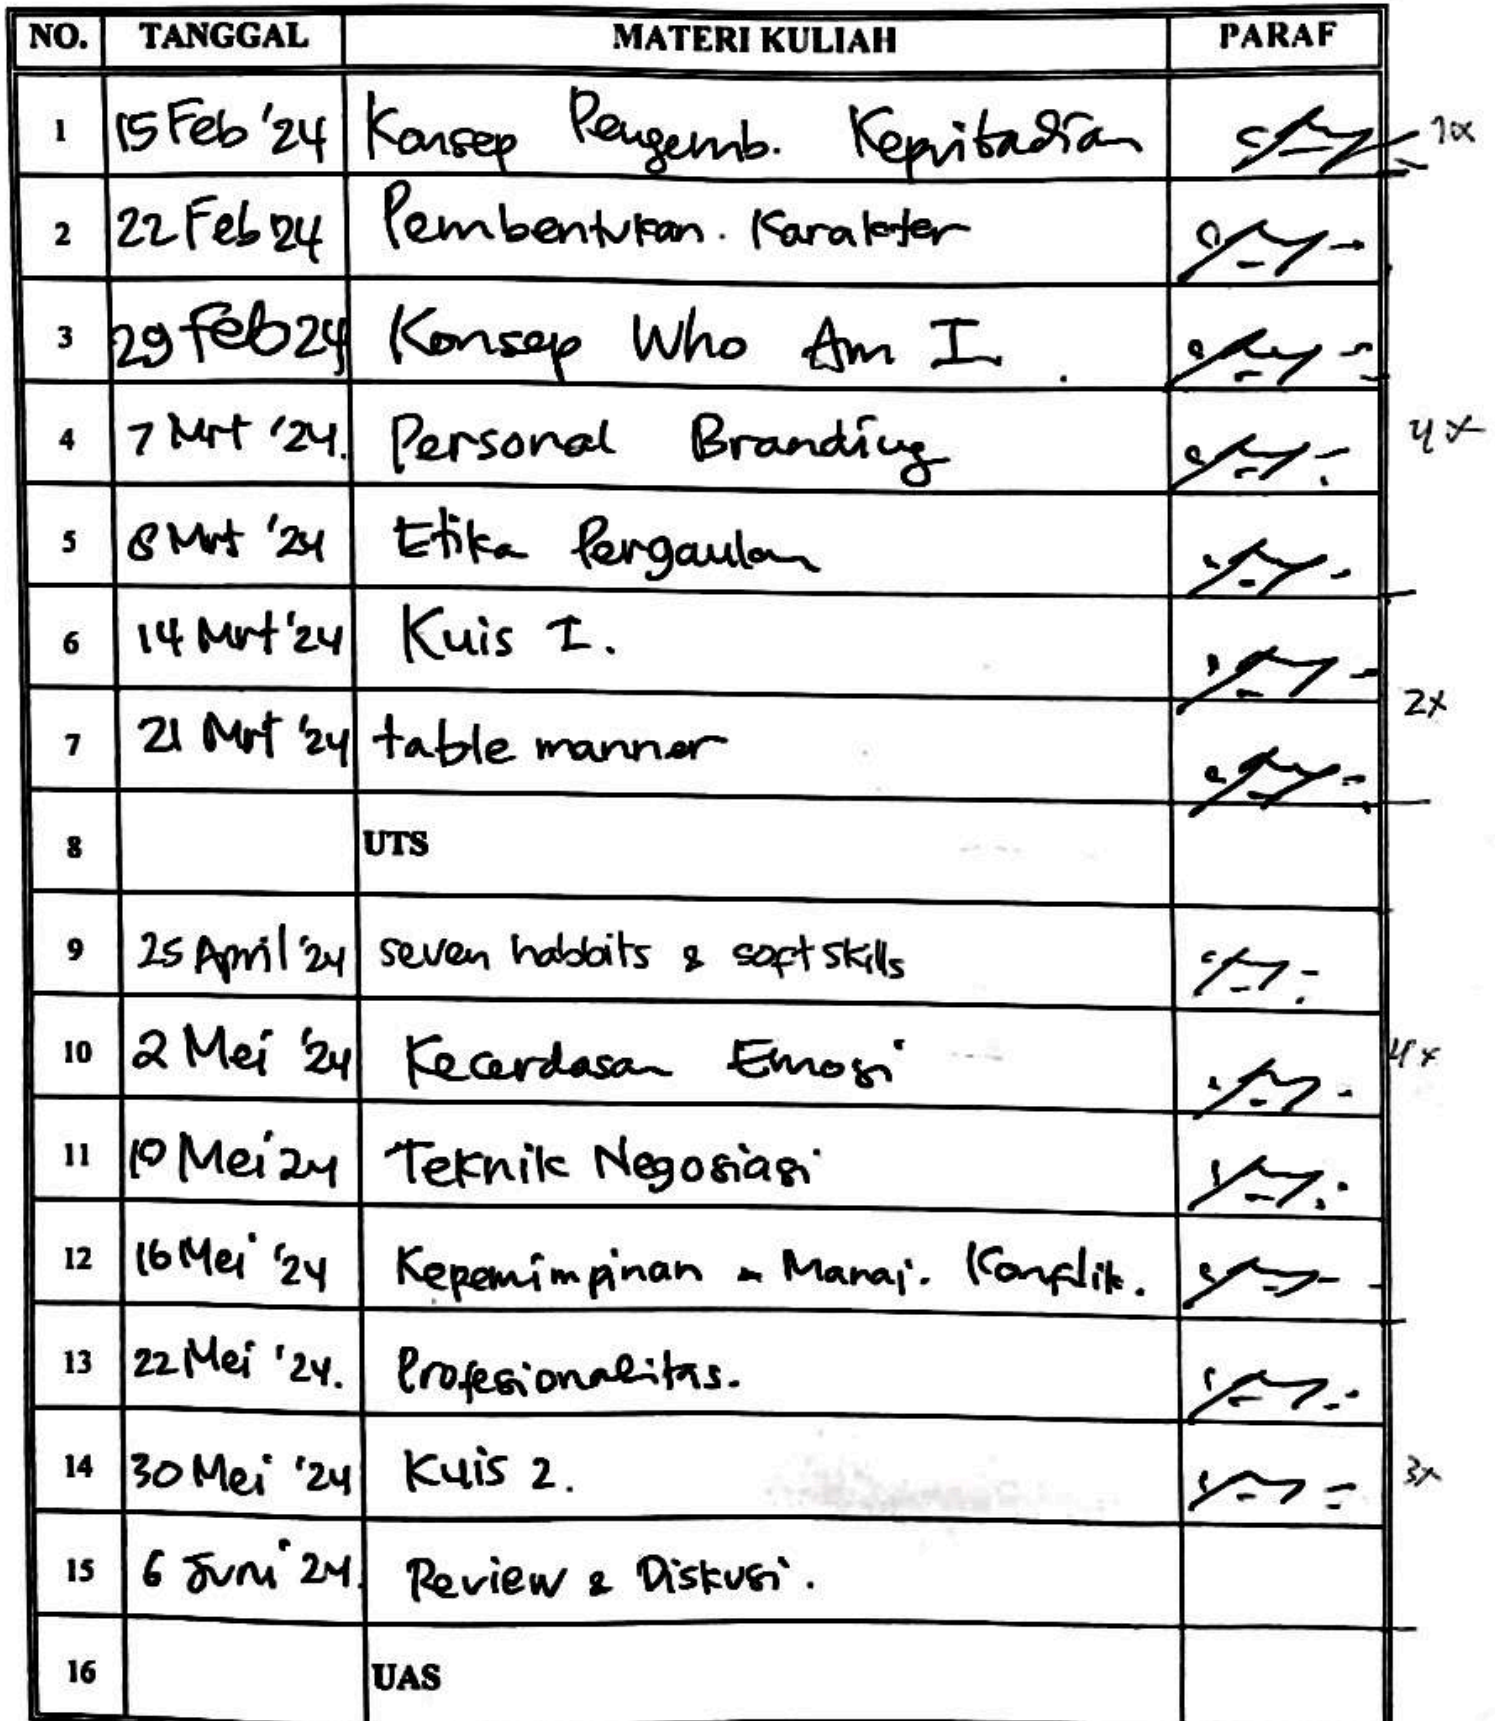 NO. TANGGAL MATERI KULIAH PARAF
1 15 Feb '24 Konsep Pengemb. Kepribadian 1x
2 22 Feb 24 Pembentukan. Karakter
3 29 Feb 24 Konsep Who Am I.
4 7 Mrt '24. Personal Branding 4x
5 8 Mrt '24 Etika Pergaulan
6 14 Mrt '24 Kuis I.
7 21 Mrt '24 table manner 2x
8 UTS
9 25 April '24 seven habbits & soft skills
10 2 Mei '24 Kecerdasan Emosi 4x
11 10 Mei '24 Teknik Negosiasi
12 16 Mei '24 Kepemimpinan & Manaj. Konflik.
13 22 Mei '24. Profesionalitas.
14 30 Mei '24 Kuis 2. 3x
15 6 Juni '24. Review & Diskusi.
16 UAS